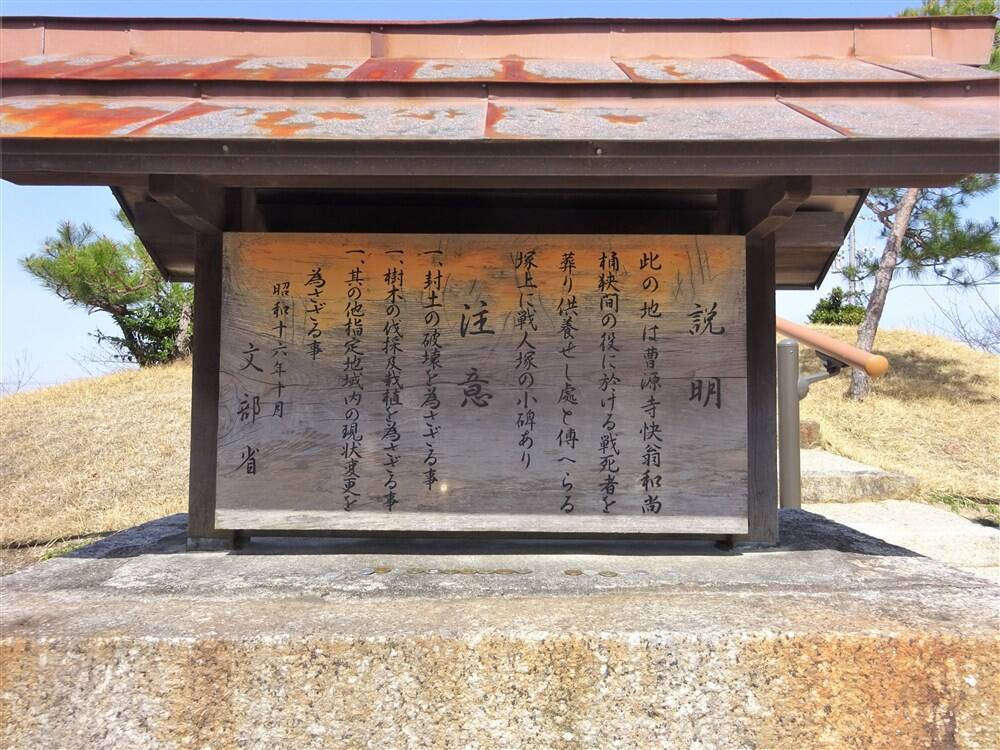 説明
此の地は曹源寺快翁和尚
桶狭間の役に於ける戦死者を
葬り供養せし處と傳へらる
塚上に戦人塚の小碑あり
注意
一、封土の破壊を為さざる事
一、樹木の伐採及栽植を為さざる事
一、其の他指定地域内の現状変更を
為さざる事
昭和十六年十月
文部省